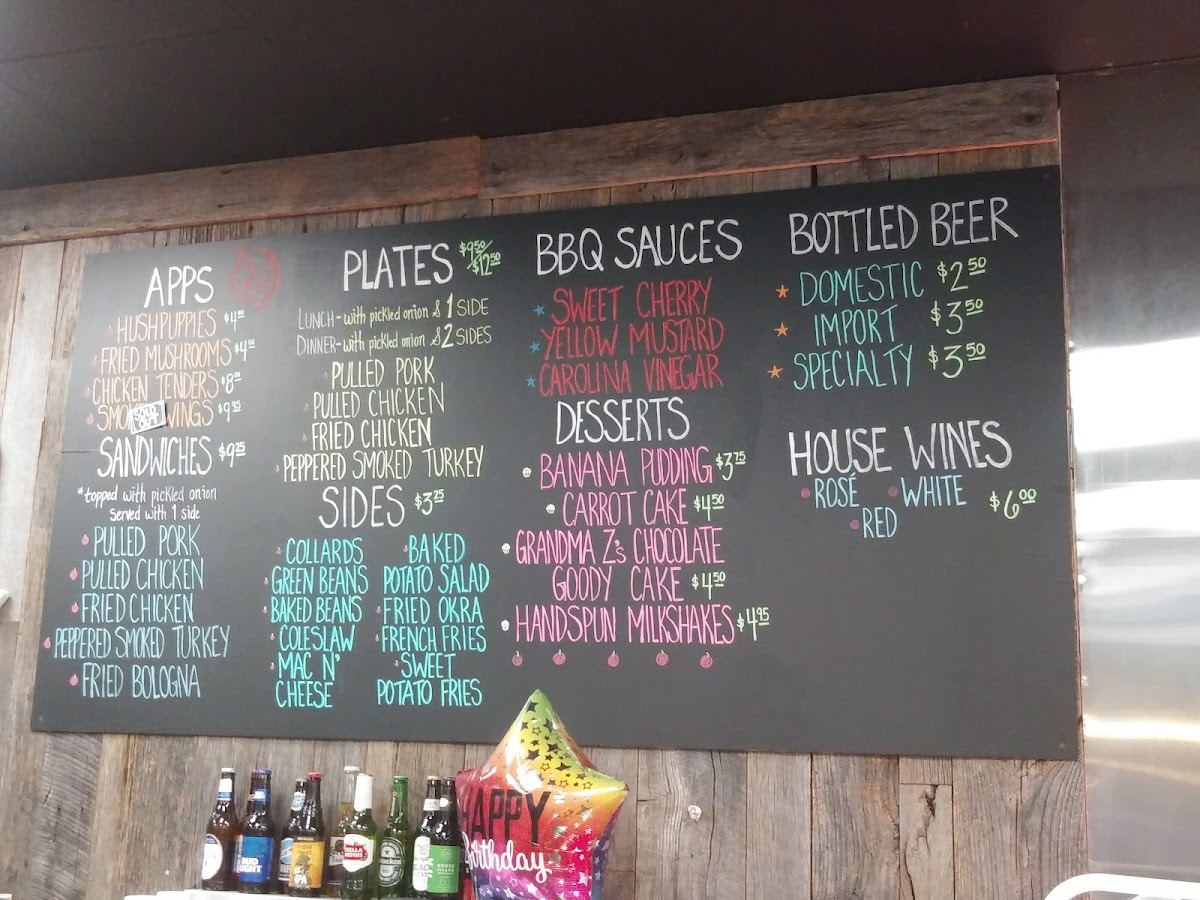 APPS
HUSHPUPPIES $4.00
FRIED MUSHROOMS $4.00
CHICKEN TENDERS $8.00
SMO SOLD OUT WINGS $9.95
SANDWICHES $9.25
*topped with pickled onion
served with 1 side
PULLED PORK
PULLED CHICKEN
FRIED CHICKEN
PEPPERED SMOKED TURKEY
FRIED BOLOGNA
PLATES $9.50/$12.50
LUNCH-with pickled onion & 1 SIDE
DINNER-with pickled onion & 2 SIDES
PULLED PORK
PULLED CHICKEN
FRIED CHICKEN
PEPPERED SMOKED TURKEY
SIDES $3.25
COLLARDS
GREEN BEANS
BAKED BEANS
COLESLAW
MAC N'
CHEESE
BAKED
POTATO SALAD
FRIED OKRA
FRENCH FRIES
SWEET
POTATO FRIES
BBQ SAUCES
SWEET CHERRY
YELLOW MUSTARD
CAROLINA VINEGAR
DESSERTS
BANANA PUDDING $3.75
CARROT CAKE $4.50
GRANDMA Z's CHOCOLATE
GOODY CAKE $4.50
HANDSPUN MILKSHAKES $4.95
BOTTLED BEER
DOMESTIC $2.50
IMPORT $3.50
SPECIALTY $3.50
HOUSE WINES
ROSÉ WHITE $6.00
RED
BUD
LIGHT
STELLA
ARTOIS
Heineken
GOOSE
ISLAND
HAPPY
Birthday